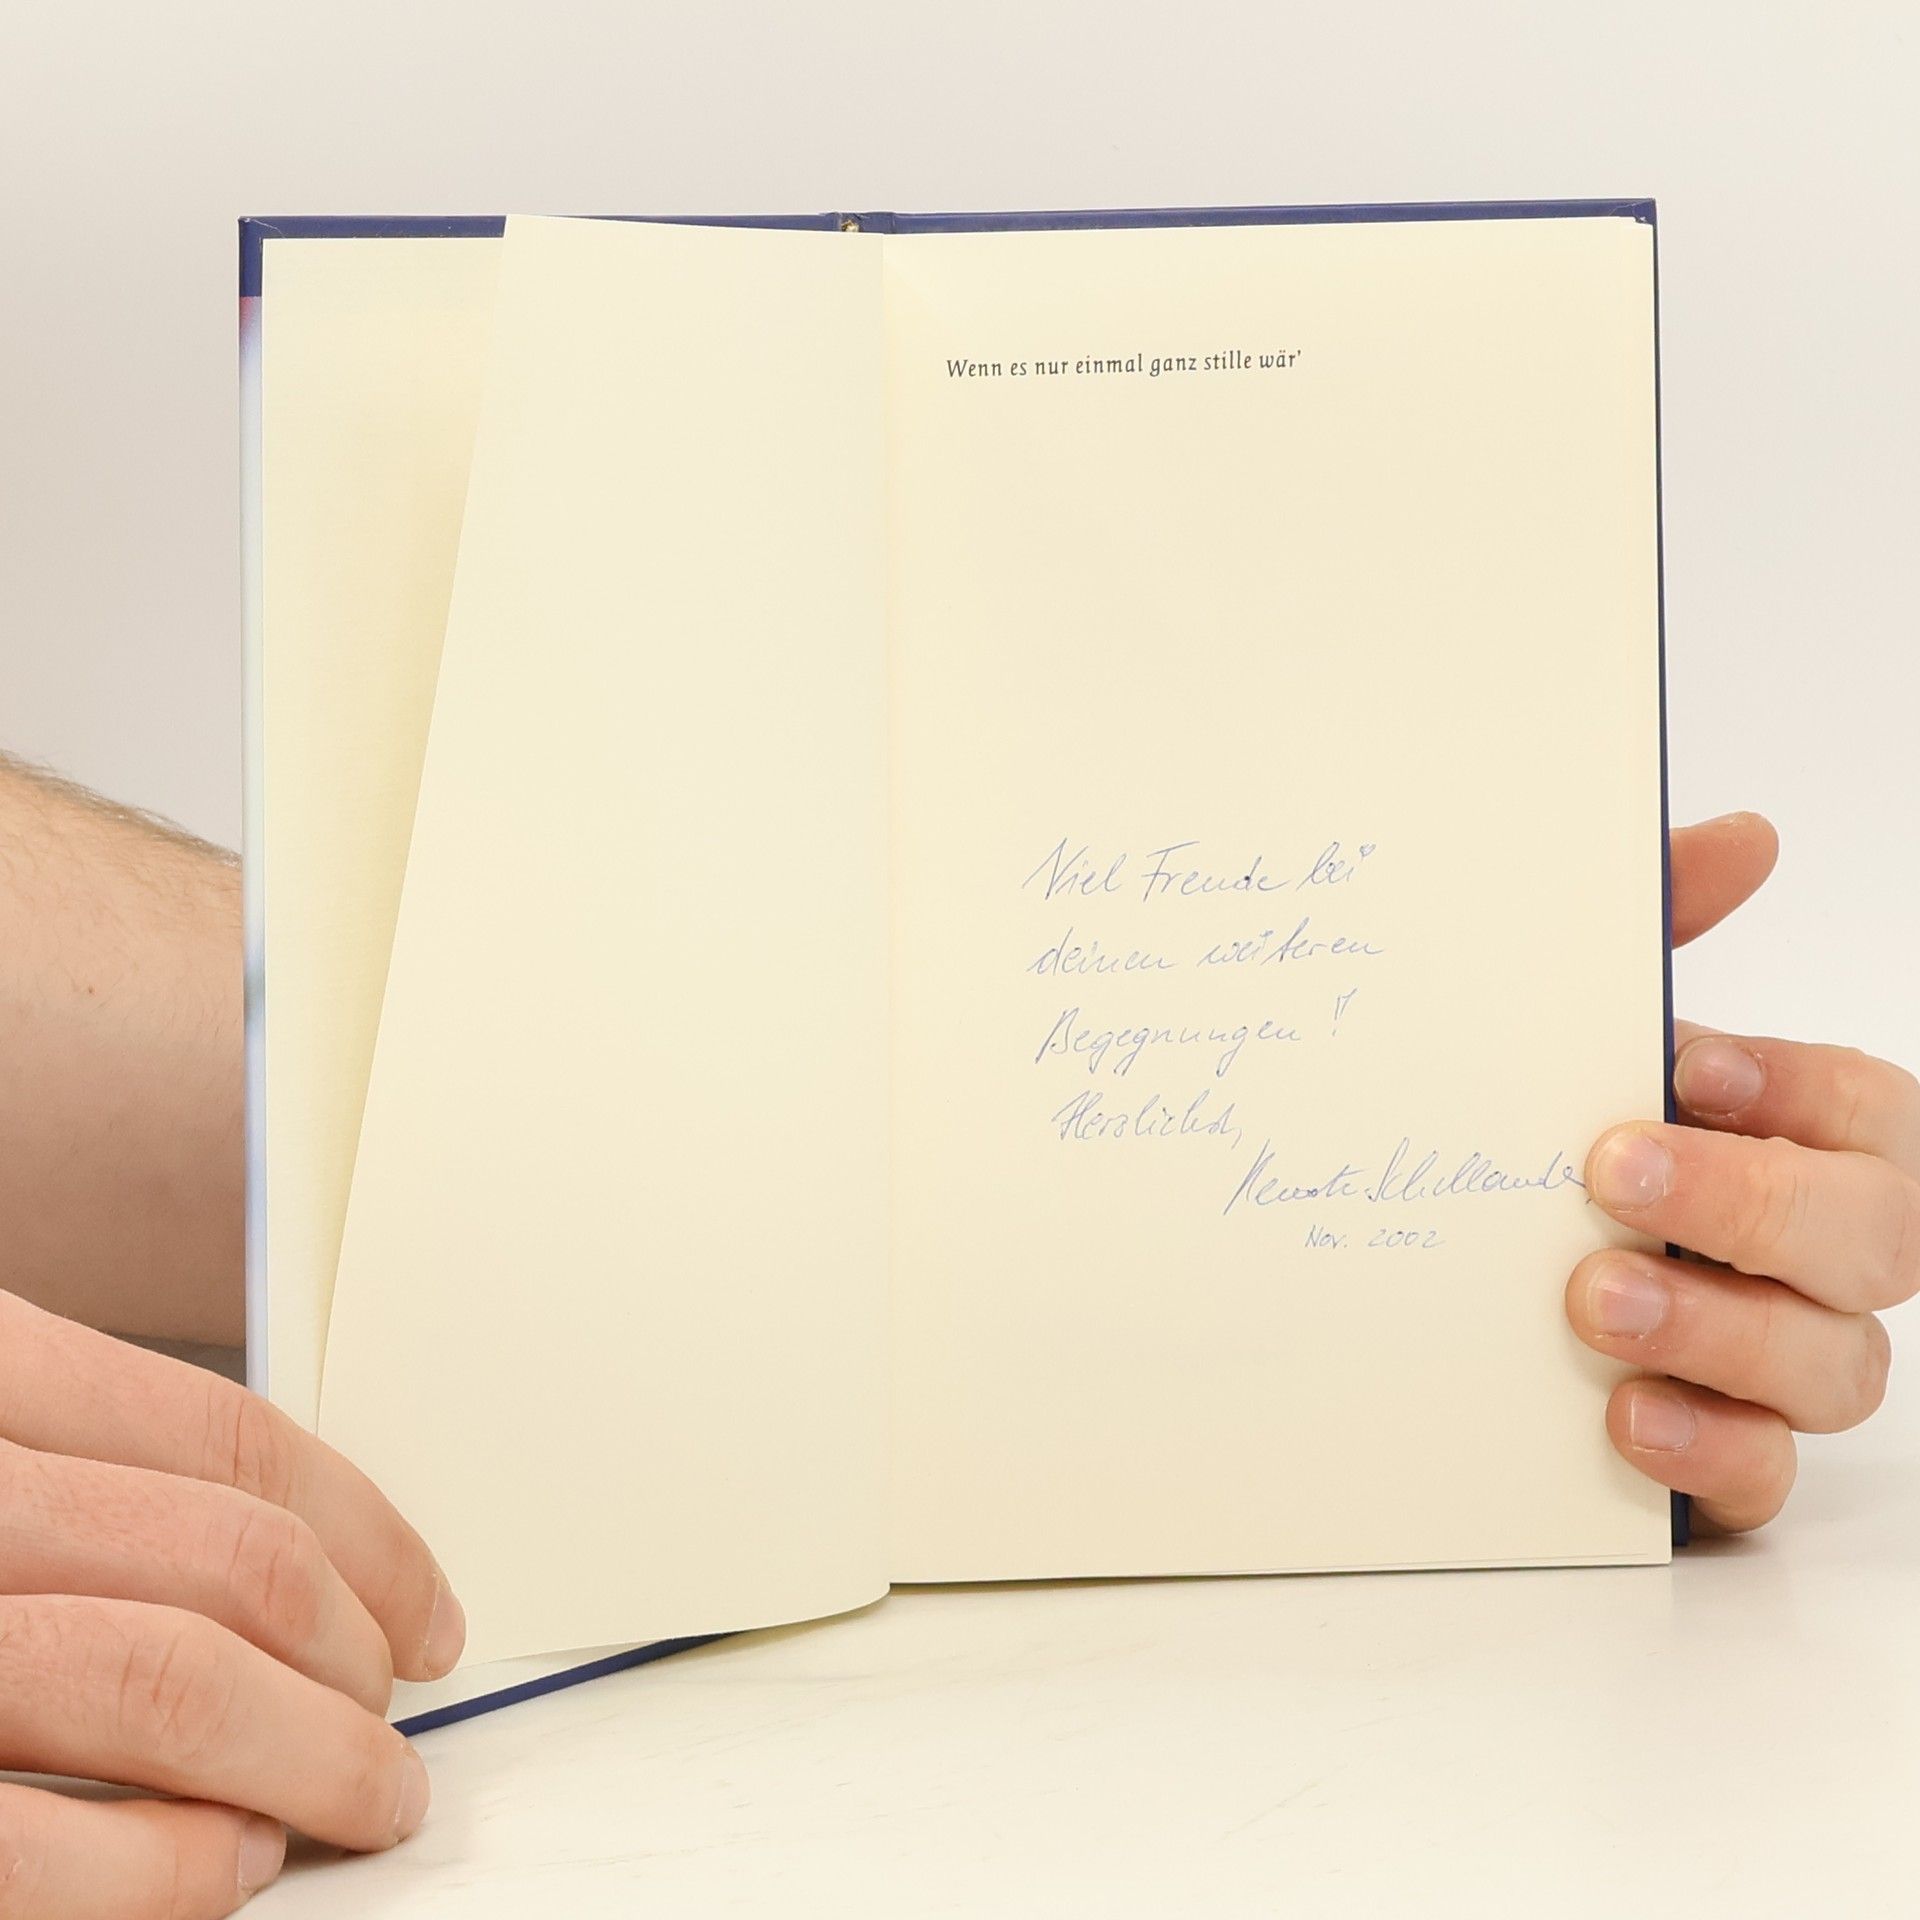 Wenn es nur einmal ganz stille wär'
Viel Freude bei
deinen weiteren
Begegnungen!!
Herzlichst,
Nov. 2002